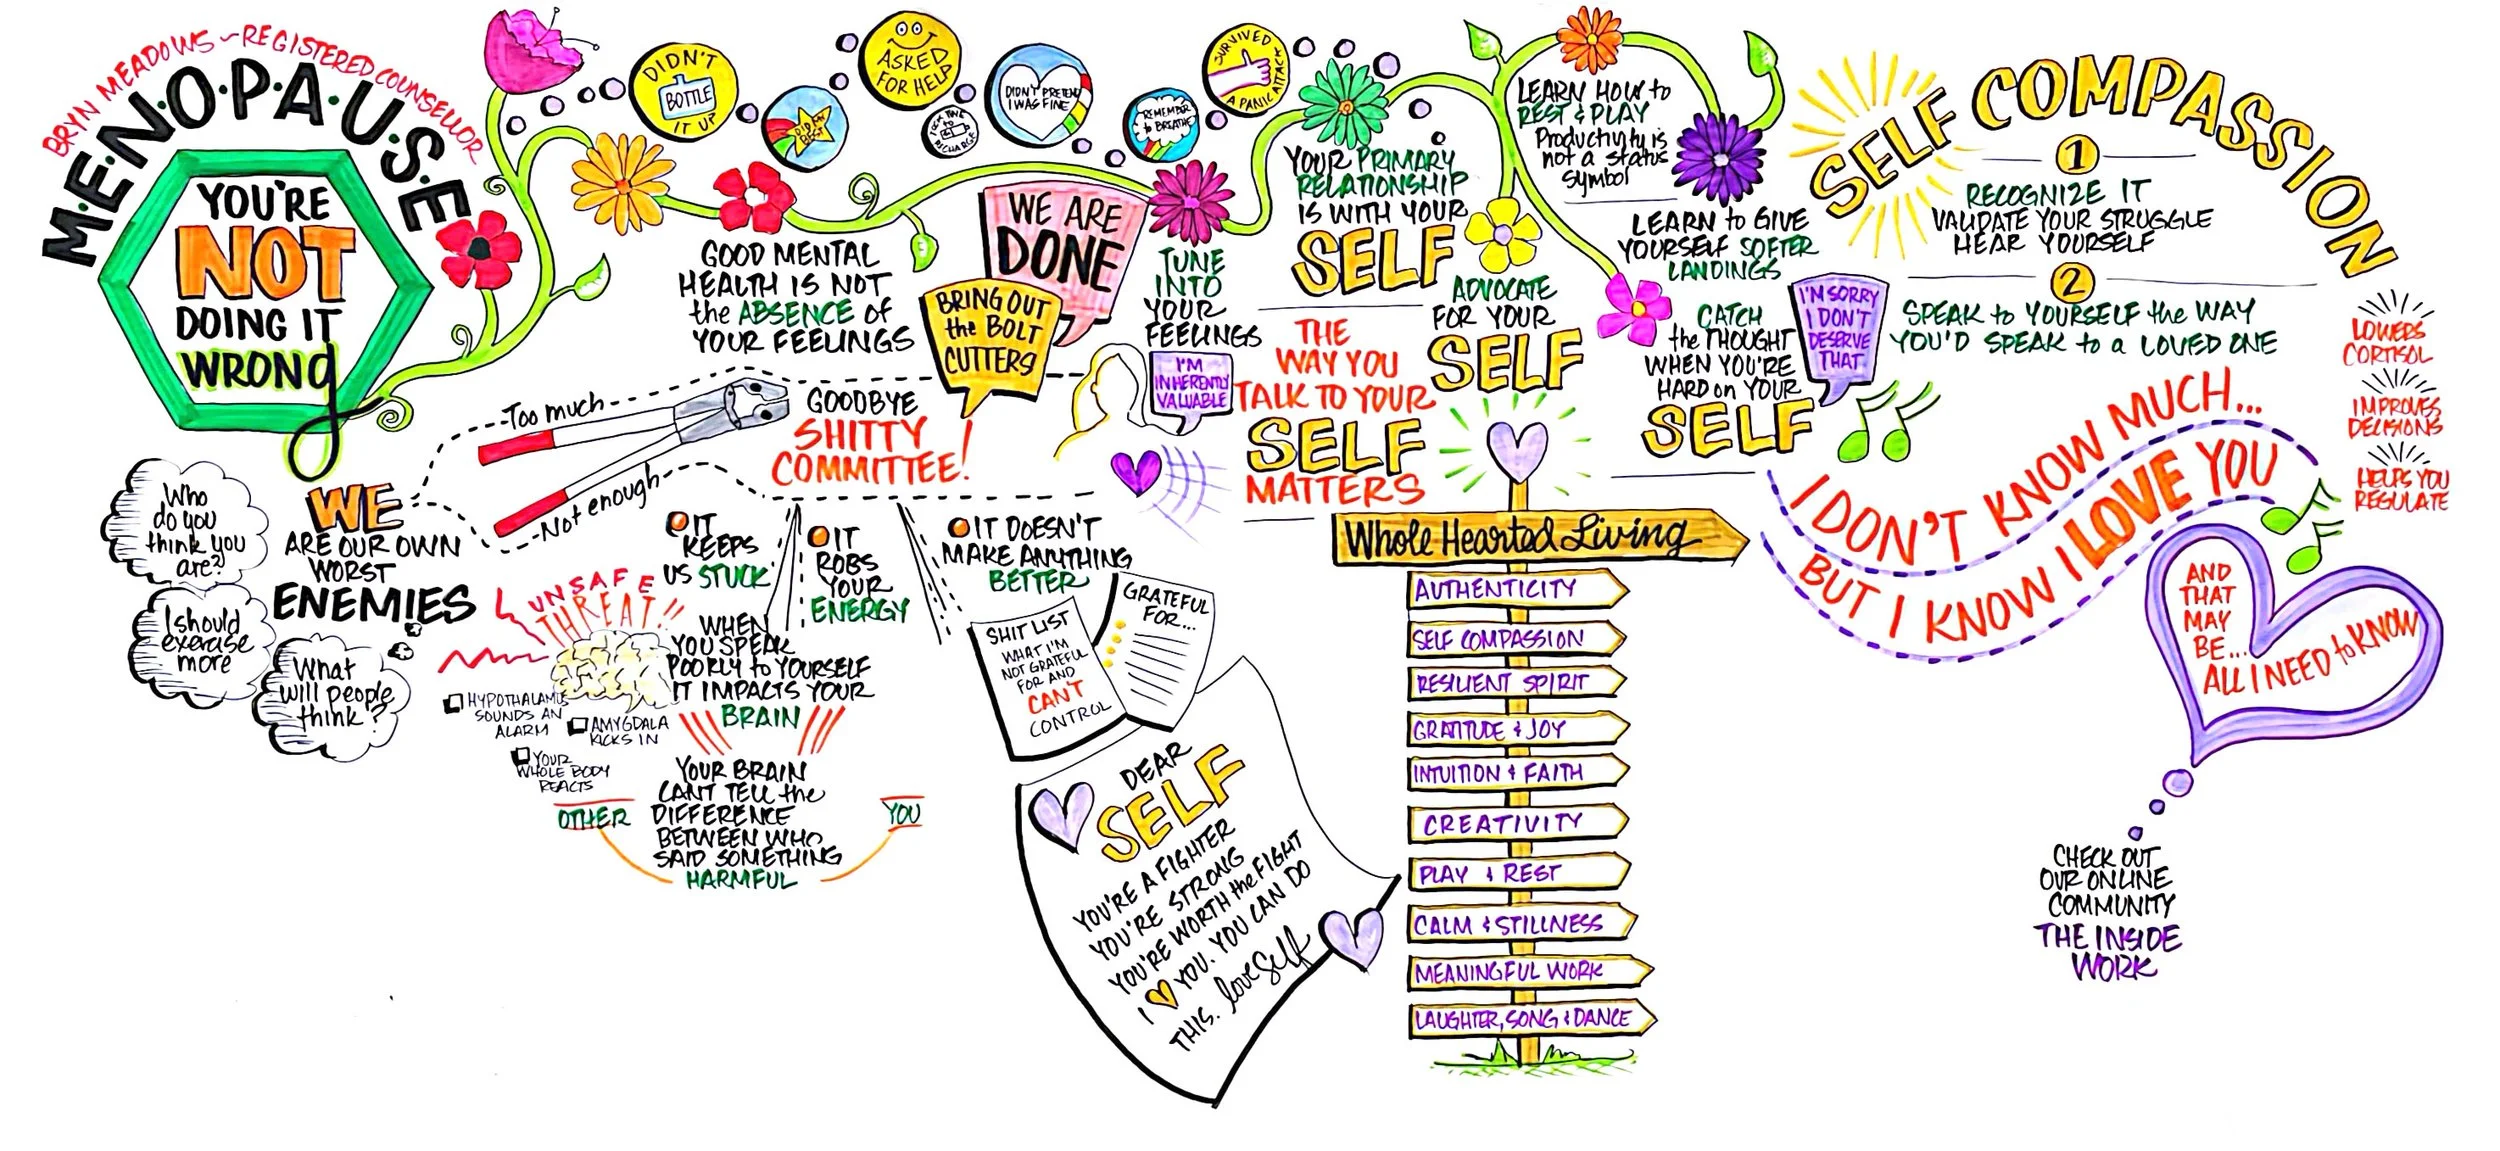 BRYN MEADOWS ~ REGISTERED COUNSELLOR
M·E·N·O·P·A·U·S·E
YOU'RE
NOT
DOING IT
WRONG
DIDN'T
BOTTLE
IT UP
DID MY
BEST
ASKED
FOR HELP
TOOK TIME
to
RECHARGE
DIDN'T PRETEND
I WAS FINE
REMEMBER
to BREATHE
SURVIVED
A PANIC ATTACK
GOOD MENTAL
HEALTH IS NOT
the ABSENCE of
YOUR FEELINGS
WE ARE
DONE
BRING OUT
the BOLT
CUTTERS
TUNE
INTO
YOUR
FEELINGS
I'M
INHERENTLY
VALUABLE
YOUR PRIMARY
RELATIONSHIP
IS WITH YOUR
SELF
THE
WAY YOU
TALK TO YOUR
SELF
MATTERS
ADVOCATE
FOR YOUR
SELF
LEARN HOW to
REST & PLAY
Productivity is
not a status
symbol
LEARN to GIVE
YOURSELF SOFTER
LANDINGS
CATCH
the THOUGHT
WHEN YOU'RE
HARD on YOUR
SELF
I'M SORRY
I DON'T
DESERVE
THAT
SELF COMPASSION
1
RECOGNIZE IT
VALIDATE YOUR STRUGGLE
HEAR YOURSELF
2
SPEAK to YOURSELF the WAY
YOU'D SPEAK to a LOVED ONE
LOWERS
CORTISOL
IMPROVES
DECISIONS
HELPS YOU
REGULATE
I DON'T KNOW MUCH...
BUT I KNOW I LOVE YOU
AND
THAT
MAY
BE...
ALL I NEED to KNOW
CHECK OUT
OUR ONLINE
COMMUNITY
THE INSIDE
WORK
Who
do you
think you
are?
I should
exercise
more
What
will people
think?
WE
ARE OUR OWN
WORST
ENEMIES
Too much
Not enough
GOODBYE
SHITTY
COMMITTEE!
IT
KEEPS
US STUCK
IT
ROBS
YOUR
ENERGY
IT DOESN'T
MAKE ANYTHING
BETTER
UNSAFE
THREAT!!
HYPOTHALAMUS
SOUNDS AN
ALARM
AMYGDALA
KICKS IN
YOUR
WHOLE BODY
REACTS
WHEN
YOU SPEAK
POORLY to YOURSELF
IT IMPACTS YOUR
BRAIN
YOUR BRAIN
CAN'T TELL the
DIFFERENCE
BETWEEN WHO
SAID SOMETHING
HARMFUL
OTHER
YOU
SHIT LIST
WHAT I'M
NOT GRATEFUL
FOR AND
CAN'T
CONTROL
GRATEFUL
FOR...
DEAR
SELF
YOU'RE A FIGHTER
YOU'RE STRONG
YOU'RE WORTH the FIGHT
I ♡ YOU. YOU CAN DO
THIS. love Self
Whole Hearted Living
AUTHENTICITY
SELF COMPASSION
RESILIENT SPIRIT
GRATITUDE & JOY
INTUITION & FAITH
CREATIVITY
PLAY & REST
CALM & STILLNESS
MEANINGFUL WORK
LAUGHTER, SONG & DANCE